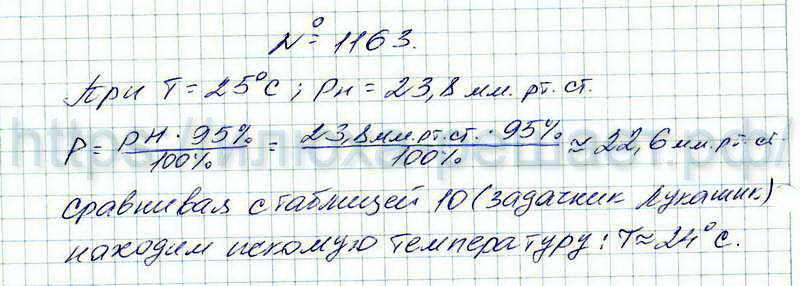 № 1163.
При T = 25°C; Pн = 23,8 мм. рт. ст.
P = PН · 95% / 100% = 23,8 мм. рт. ст. · 95% / 100% ≈ 22,6 мм. рт. ст.
сравнивая с таблицей 10 (задачник Лукашик)
находим искомую температуру: T ≈ 24°C.